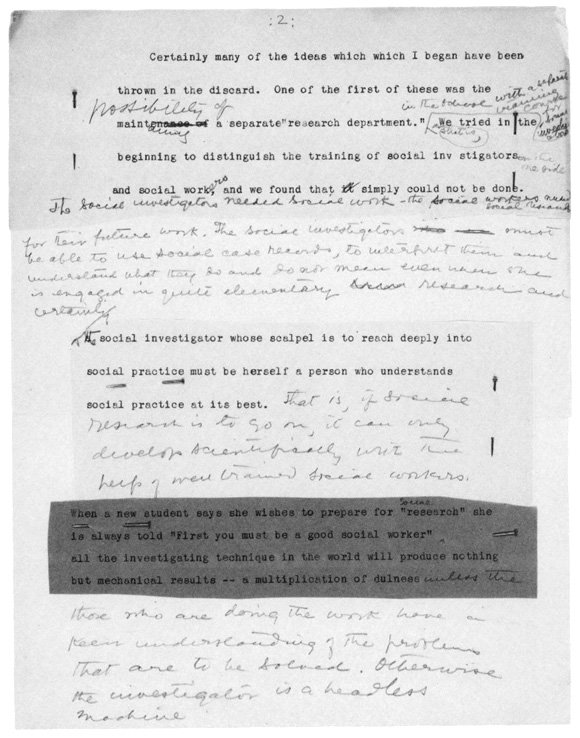 : 2 :
Certainly many of the ideas which which I began have been
thrown in the discard. One of the first of these was the
possibility of
in the School with a separate
training
course for
maintenance of a separate "research department." We tried in the
aining
social
beginning to distinguish the training of social inv stigators
on the
one side
and social workers, and we found that it simply could not be done.
The social investigators needed social work – the social workers need
social research
for their future work. The social investigators must
be able to use social case records, to interpret them and
understand what they do and do not mean even when she
is engaged in quite elementary social research and
certainly
The social investigator whose scalpel is to reach deeply into
social practice must be herself a person who understands
social practice at its best. That is, if social
research is to go on, it can only
develop scientifically with the
help of well trained social workers.
social
When a new student says she wishes to prepare for "research" she
is always told "First you must be a good social worker"
all the investigating technique in the world will produce nothing
but mechanical results -- a multiplication of dulness unless the
those who are doing the work have a
keen understanding of the problems
that are to be solved. Otherwise
the investigator is a headless
machine